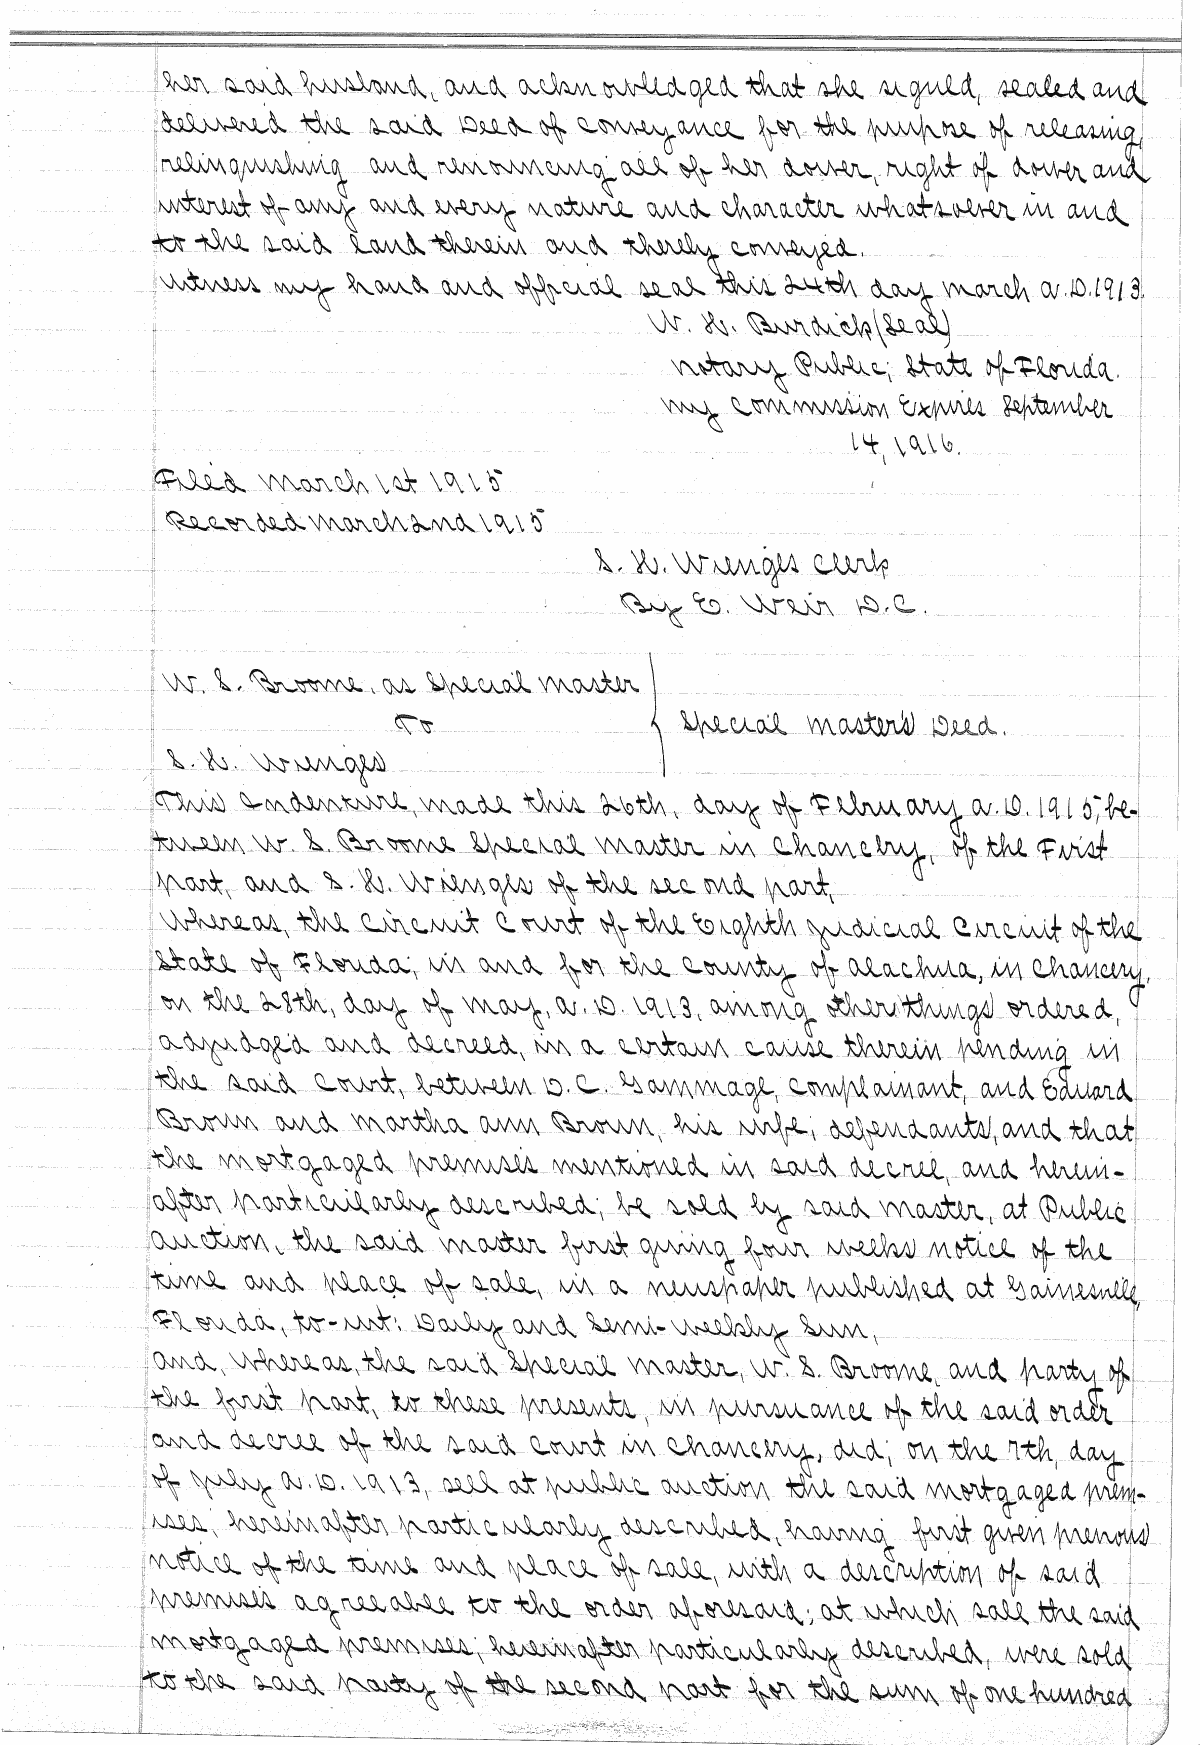 her said husband, and acknowledged that she signed, sealed and
delivered the said Deed of conveyance for the purpose of releasing,
relinquishing and renouncing all of her dower, right of dower and
interest of any and every nature and character whatsoever in and
to the said land therein and thereby conveyed.
Witness my hand and official seal this 24th day March A.D. 1913.
W. H. Burdick (Seal)
Notary Public; State of Florida.
My Commission Expires September
14, 1916.
Filed March 1st 1915
Recorded March 2nd 1915
S. H. Wienges Clerk
By E. Weir D.C.
W. S. Broome, as Special Master
To
Special Master's Deed.
S. H. Wienges
This Indenture, made this 26th, day of February A.D. 1915, be-
tween W. S. Broome Special Master in Chancery, of the First
part, and S. H. Wienges of the second part,
Whereas, the Circuit Court of the Eighth Judicial Circuit of the
State of Florida; in and for the County of Alachua, in Chancery,
on the 28th, day of May, A.D. 1913, among other things ordered,
adjudged and decreed, in a certain cause therein pending in
the said court, between D.C. Gammage, complainant, and Edward
Brown and Martha Ann Brown, his wife, defendants, and that
the mortgaged premises mentioned in said decree, and herein-
after particularly described; be sold by said master, at Public
Auction, the said master first giving four weeks notice of the
time and place of sale, in a newspaper published at Gainesville,
Florida, to-wit: Daily and Semi-Weekly Sun,
and, Whereas, the said Special Master, W. S. Broome, and party of
the first part, to these presents, in pursuance of the said order
and decree of the said Court in Chancery, did; on the 7th, day
of July A.D. 1913, sell at public auction the said mortgaged prem-
ises, hereinafter particularly described, having first given previous
notice of the time and place of sale, with a description of said
premises agreeable to the order aforesaid; at which sale the said
mortgaged premises, hereinafter particularly described, were sold
to the said party of the second part for the sum of one hundred